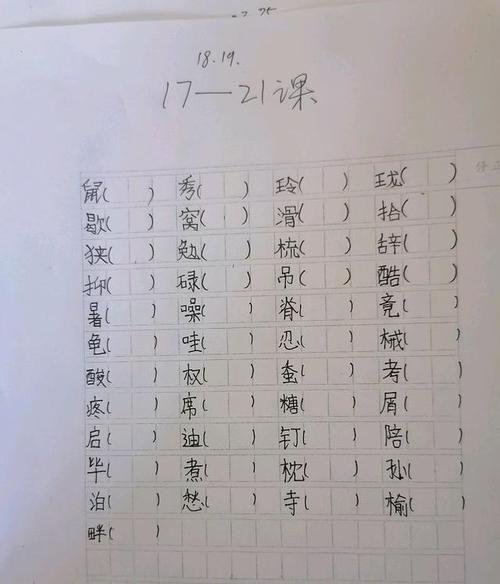 18.19.
17—21课
鼠( ) 秀( ) 玲( ) 珑( )
歇( ) 窝( ) 滑( ) 拾( )
狭( ) 勉( ) 梳( ) 辞( )
抑( ) 碌( ) 吊( ) 酷( )
暑( ) 噪( ) 脊( ) 竟( )
龟( ) 哇( ) 忍( ) 械( )
酸( ) 权( ) 蚕( ) 考( )
疼( ) 席( ) 糖( ) 屑( )
启( ) 迪( ) 钉( ) 陪( )
毕( ) 煮( ) 枕( ) 孙( )
泊( ) 愁( ) 寺( ) 榆( )
畔( )